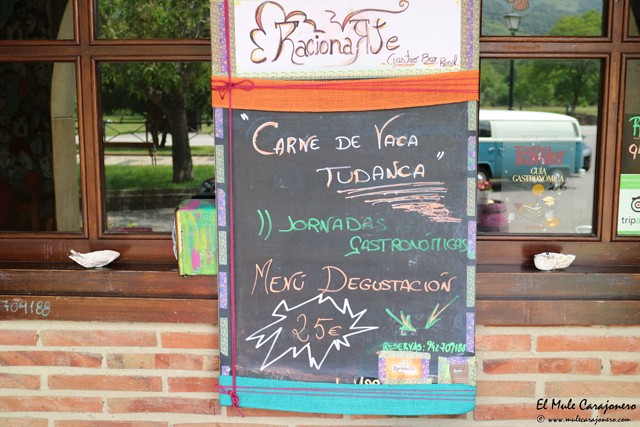 RacionArte
Gastro Bar Rural
"CARNE DE VACA
TUDANCA"
JORNADAS
GASTRONÓMICAS
MENÚ DEGUSTACIÓN
25€
RESERVAS: 942709188
709188
GUÍA
GASTRONÓMICA
El Mule Carajonero
© www.mulecarajonero.com